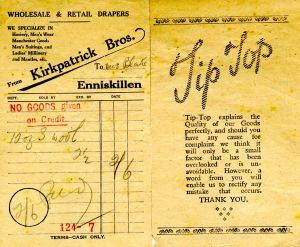 WHOLESALE & RETAIL DRAPERS
WE SPECIALIZE IN
Hosiery, Men's Wear
Manchester Goods
Men's Suitings, and
Ladies' Millinery
and Mantles, etc.
From Kirkpatrick Bros.
To Mrs
Enniskillen
DEPT. SOLD BY EXD. BY AMOUNT
NO GOODS given
on Credit.
wool
2/6
2/6
124- 7
TERMS—CASH ONLY.
Tip Top
Tip-Top explains the
Quality of our Goods
perfectly, and should you
have any cause for
complaint we think it
will only be a small
factor that has been
overlooked or is un-
avoidable. However, a
word from you will
enable us to rectify any
mistake that occurs.
THANK YOU.